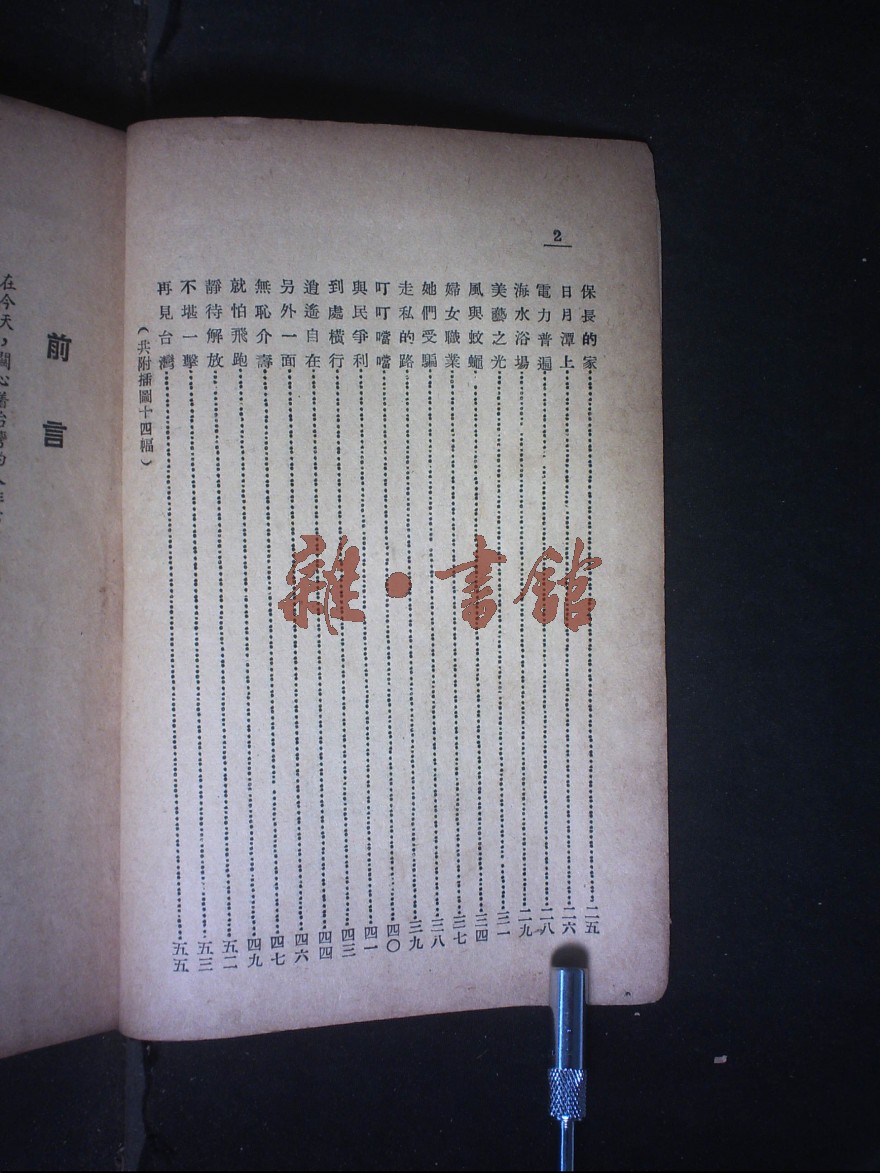 2
保長的家……二五
日月潭上……二六
電力普遍……二八
海水浴場……二九
美藝之光……三一
風與蚊蠅……三四
婦女職業……三七
她們受騙……三八
走私的路……三九
叮叮噹噹……四〇
與民爭利……四一
到處橫行……四三
逍遙自在……四四
另外一面……四六
無恥介壽……四七
就怕飛跑……四九
靜待解放……五二
不堪一擊……五三
再見台灣……五五
（共附插圖十四幅）
前言
在今天，關心着台灣的人
雜·書館